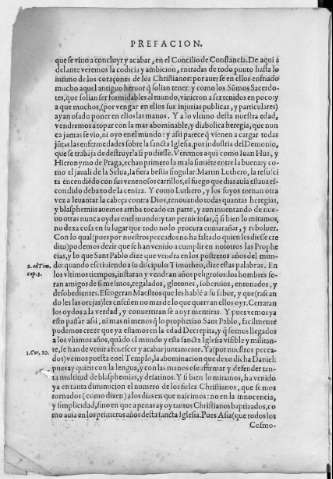 PREFACION.
que se vino a concluyr y acabar, en el Concilio de Constancia. De aqui a
delante veremos la codicia y ambicion, entradas de todo punto hasta lo
intimo de los coraçones de los Christianos: por auerse en ellos enfriado
mucho aquel antiguo heruor q̃ solian tener. y como los Sũmos Sacerdo-
tes, que solian ser formidables al mundo, vinieron a ser tenidos en poco y
a que muchos, (por vengar en ellos sus injurias publicas, y particulares)
ayan osado poner en ellos las manos. Y a lo vltimo desta nuestra edad,
vendremos a topar con la mar abominable, y diabolica heregia, que aun
ea jamas se vio, ni oyo en el mundo: y assi parece q̃ vienen a cargar todas
jũtas las enfermedades sobre la sancta Iglesia, por industria del Demonio,
que se trabaja de destruyr la si pudiesse. Veremos aqui como Iuan Hus, y
Hieronymo de Praga, echan primero la mala simiente entre la buena: y co-
mo el jauali de la Selua, la fiera bestia singular Martin Luthero, la resusci
ta encendiendo con sus venenosos carrillos, el fuego que duraua aun es-
condido debaxo de la ceniza. Y como Luthero, y los suyos tornan otra
vez a leuantar la cabeça contra Dios, renouando todas quantas heregias,
y blasphemias auemos arriba tocado en parte, y aun inuentando de nue-
uo otras nunca oydas en el mundo: y tan perniciosas, q̃ si bien lo miramos,
no dexa cosa en su lugar que todo no lo procura contaminar, y reboluer.
Con lo qual (pues por nuestros peccados no ha faltado quien les diesse cre
dito) podemos dezir que se han venido a cumplir en nosotros las Prophe
cias, y lo que Sant Pablo dize que vendria en los postreros años del mun-
do quando escriuiendo a su dicipulo Timotheo, dize estas palabras. En
2. ad Tim.
cap. 3.
los vltimos tiempos, instaran y vendran años peligrosos: los hombres se-
ran amigos de si mismos, regalados, glotones, soberuios, entonados, y
desobedientes. Escogeran Maestros que les hable a su sabor, y que (rascan
do les las orejas) les enseñen no mas de lo que querran ellos oyr. Cerraran
los oydos a la verdad, y conuertirse an oy a mentiras. Y pues vemos ya
esto passar assi, ni mas ni menos q̃ lo prophetizo Sant Pablo, facilmente
podemos creer que ya estamos en la edad Decrepita, y q̃ somos llegados
a los vltimos años, quãdo el mundo y esta sancta Iglesia visible y militan-
1. Cor. 10.
te, se han de venir a fenescer y acabar juntamente. Ya (por nuestros pecca-
dos) vemos puesta en el Templo, la abominacion que dezia Daniel:
pues ay quien con la lengua, y con las manos ose affirmar y defender tan
ta multitud de blasphemias, y desatinos. Y si bien lo miramos, ha venido
ya en tanta diminucion el numero de los fieles Christianos, que se nos
tornados (como dizen) a los dias en que nascimos: no en la innocencia,
y simplicidad, sino en que apenas ay oy tantos Christianos baptizados, co-
mo auia en los primeros años desta sancta Iglesia. Pues Asia (que todos los
Cosmo-